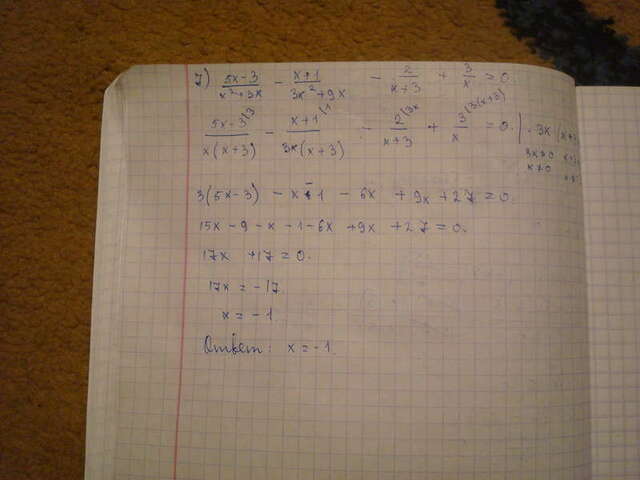 7) (5x-3)/(x²+3x) - (x+1)/(3x²+9x) - 2/(x+3) + 3/x = 0
(5x-3)^(3/(x(x+3)) - (x+1)^(1/(3x(x+3)) - 2^(3x/(x+3) + 3^(3(x+3)/x = 0. | · 3x(x+3
3x≠0
x≠0
3(5x-3) - x-1 - 6x + 9x + 27 = 0.
15x - 9 - x - 1 - 6x + 9x + 27 = 0.
17x + 17 = 0.
17x = -17.
x = -1
Ответ: x = -1.